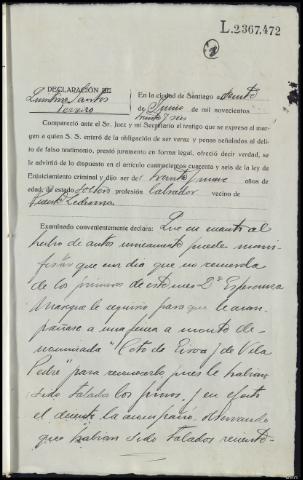 L.2367.472
2
DECLARACIÓN DE
Santos
Ferreiro
En la ciudad de Santiago a veinte
de Junio de mil novecientos
treinta y seis
Compareció ante el Sr. Juez y mi Secretario el testigo que se expresa al margen
a quien S. S. enteró de la obligación de ser veraz y penas señaladas al delito
de falso testimonio, prestó juramento en forma legal, ofreció decir verdad, se
le advirtió de lo dispuesto en el artículo cuatrocientos cuarenta y seis de la ley de
Enjuiciamiento criminal y dijo ser de treinta y nueve años de
edad, de estado soltero profesión labrador vecino de
Puente Ledesma.
Examinado convenientemente declara: Que en cuanto al
hecho de autos unicamente puede mani-
festar que un dia que no recuerda
de los primeros de este mes Dª Esperanza
le requirió para que le acom-
pañase a una finca a monte de-
nominada "Coto de y de Vila
Pedre" para reconocerlo pues le habian
sido talados los pinos y en efecto
el dicente la acompañó observando
que habian sido talados reciente-